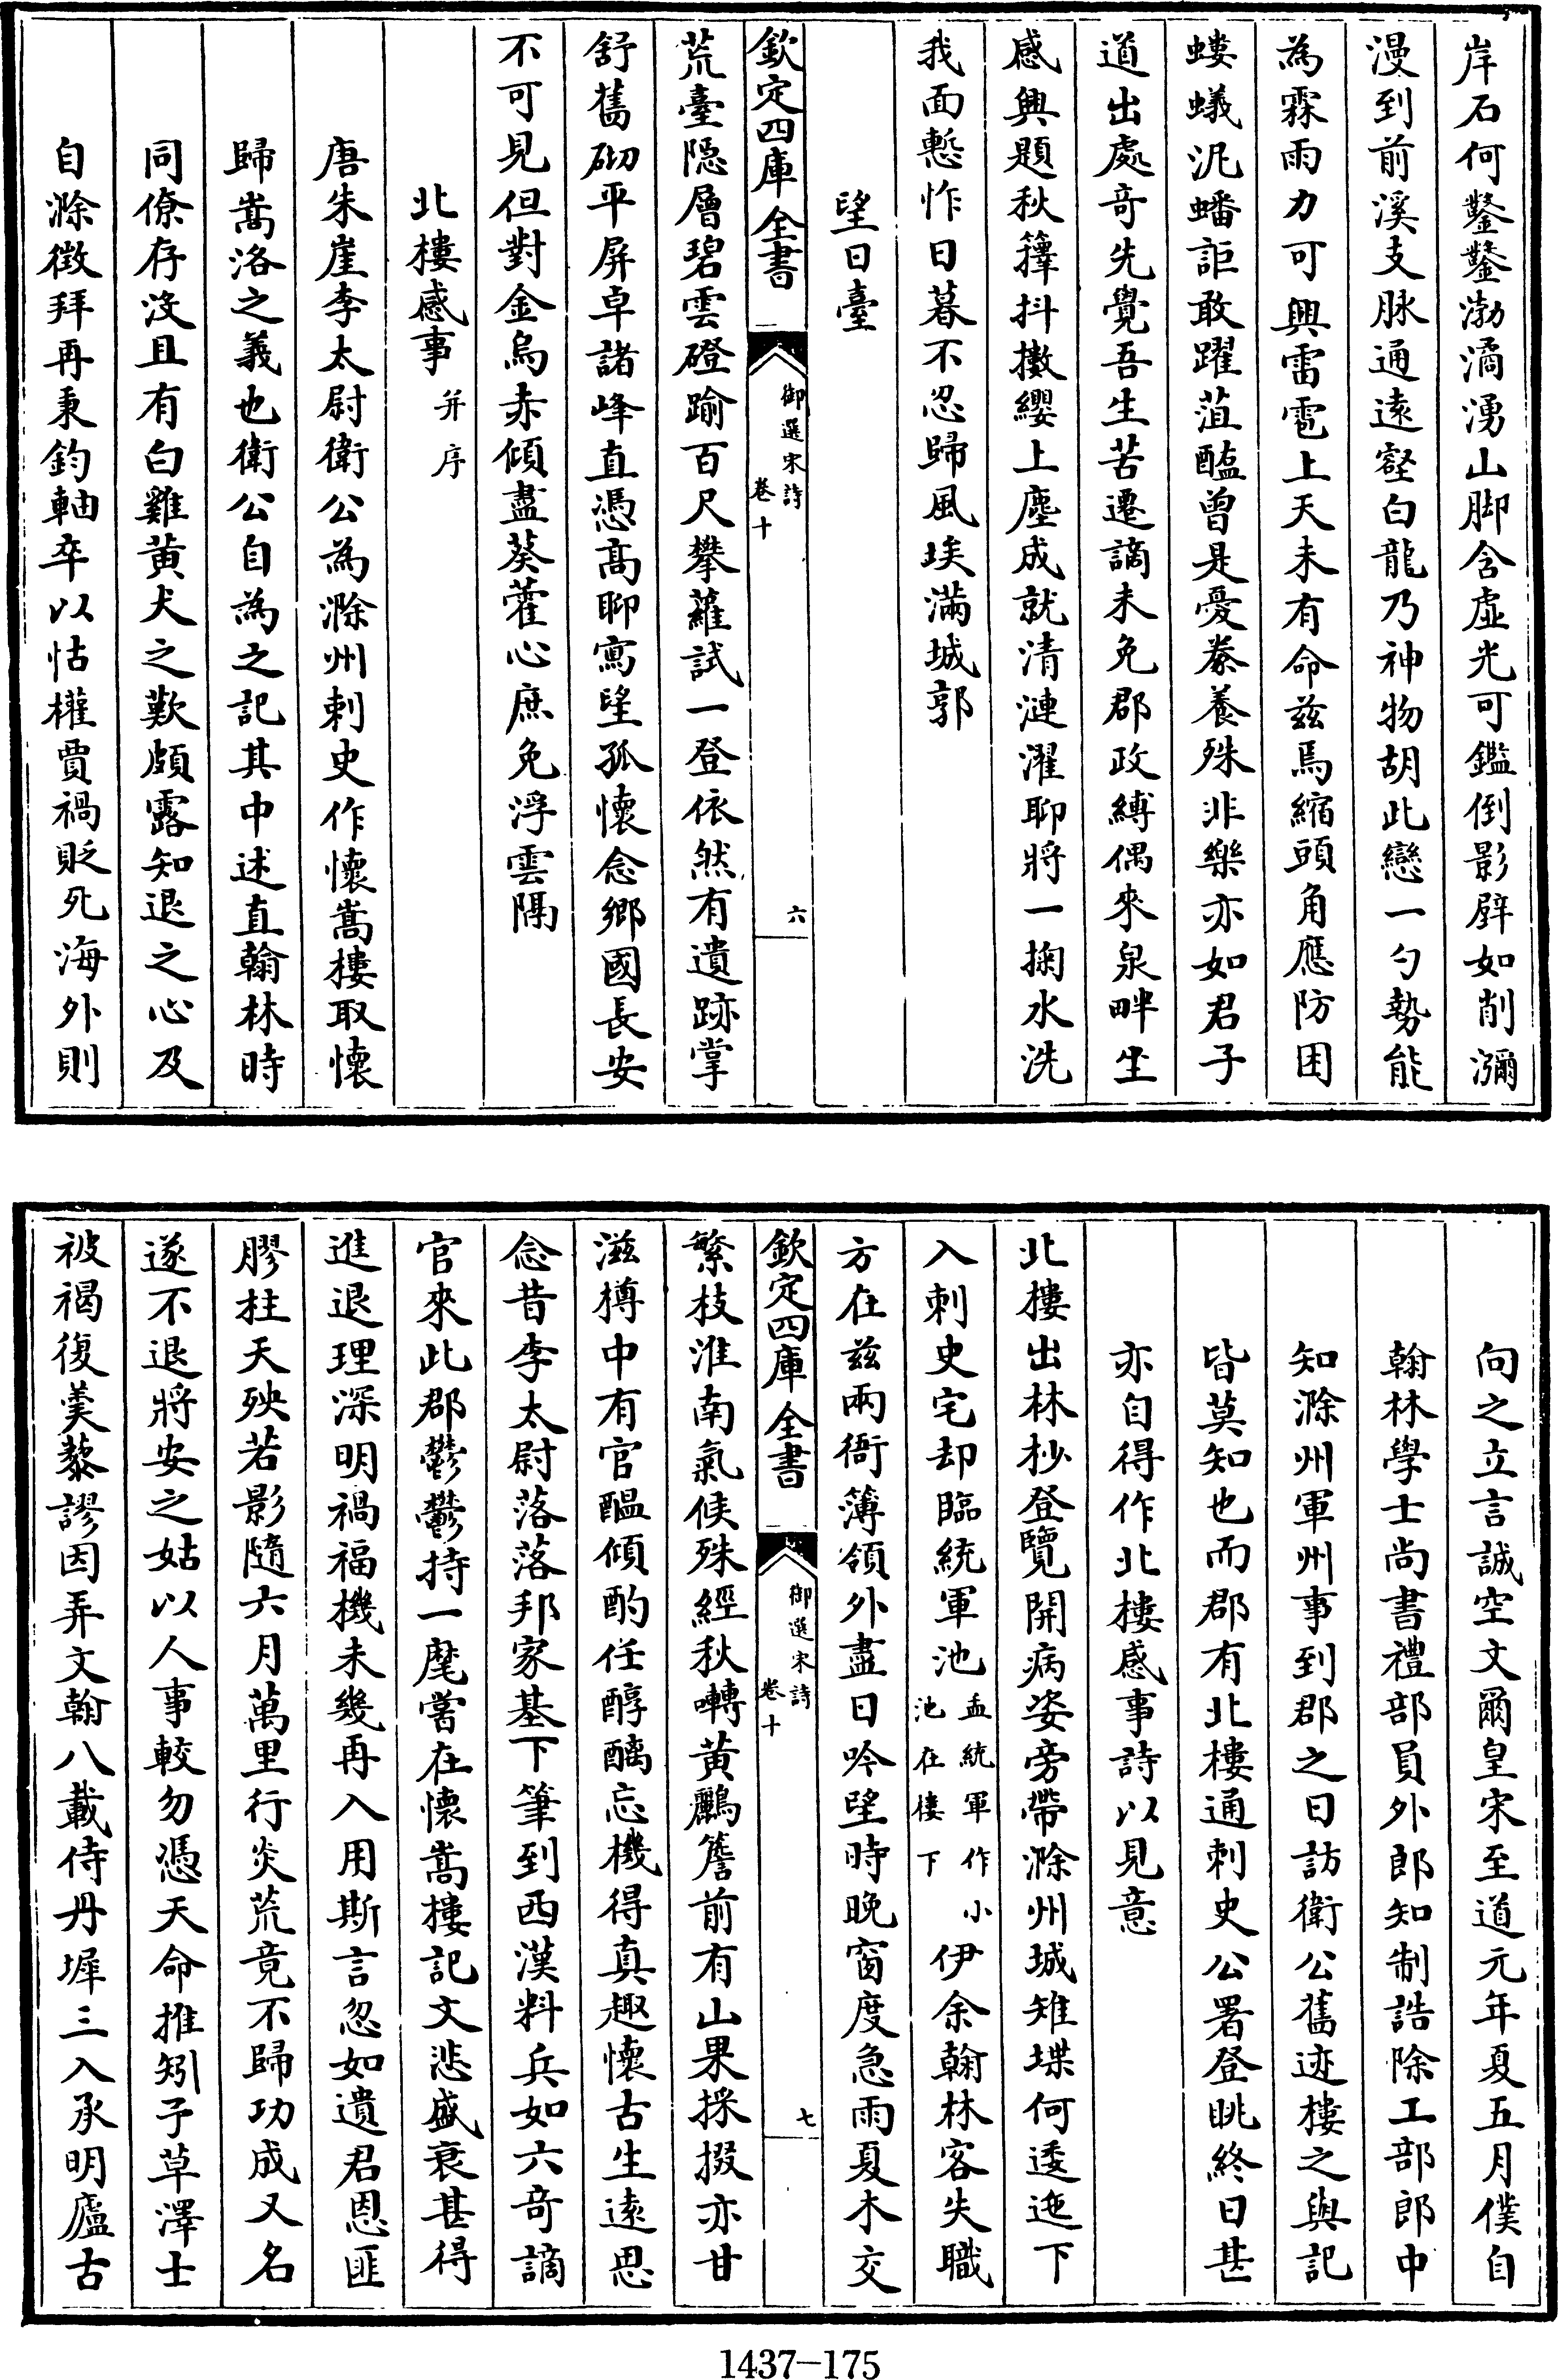 岸石何鑿鑿渤潏湧山脚含虛光可鑑倒影壁如削瀰
漫到前溪支脉通遠壑白龍乃神物胡此戀一勺勢能
為霖雨力可興雷雹上天未有命兹焉縮頭角應防困
螻蟻泥蟠詎敢躍菹醢曾是憂豢養殊非樂亦如君子
道出處奇先覺吾生苦遷謫未免郡政縛偶來泉畔坐
感興題秋籜抖擻纓上塵成就清漣濯聊將一掬水洗
我面慙怍日暮不忍歸風埃滿城郭
望日臺
欽定四庫全書
御選宋詩
卷十
六
荒臺隱層碧雲磴踰百尺攀蘿試一登依然有遺跡掌
舒舊砌平屏卓諸峰直憑高聊寓望孤懷念鄉國長安
不可見但對金烏赤傾盡葵藿心庶免浮雲隔
北樓感事并序
唐朱崖李太尉衛公為滁州刺史作懷嵩樓取懷
歸嵩洛之義也衛公自為之記其中述直翰林時
同僚存沒且有白雞黃犬之歎頗露知退之心及
自滁徵拜再秉鈞軸卒以怙權賈禍貶死海外則
向之立言誠空文爾皇宋至道元年夏五月僕自
翰林學士尚書禮部員外郎知制誥除工部郎中
知滁州軍州事到郡之日訪衛公舊迹樓之與記
皆莫知也而郡有北樓通刺史公署登眺終日甚
亦自得作北樓感事詩以見意
北樓出林杪登覽開病姿旁帶滁州城雉堞何逶迤下
入刺史宅却臨統軍池孟統軍作小池在樓下伊余翰林客失職
方在兹兩衙簿領外盡日吟望時晚窗度急雨夏木交
欽定四庫全書
御選宋詩
卷十
七
繁枝淮南氣候殊經秋囀黃鸝簷前有山果採掇亦甘
滋樽中有官醞傾酌任醇醨忘機得真趣懷古生遠思
念昔李太尉落落邦家基下筆到西漢料兵如六奇謫
官來此郡鬱鬱持一麾嘗在懷嵩樓記文悲盛衰甚得
進退理深明禍福機未幾再入用斯言忽如遺君恩匪
膠柱天殃若影隨六月萬里行炎荒竟不歸功成又名
遂不退將安之姑以人事較勿憑天命推矧予草澤士
被褐復羹藜謬因弄文翰八載侍丹墀三入承明廬古
1437-175